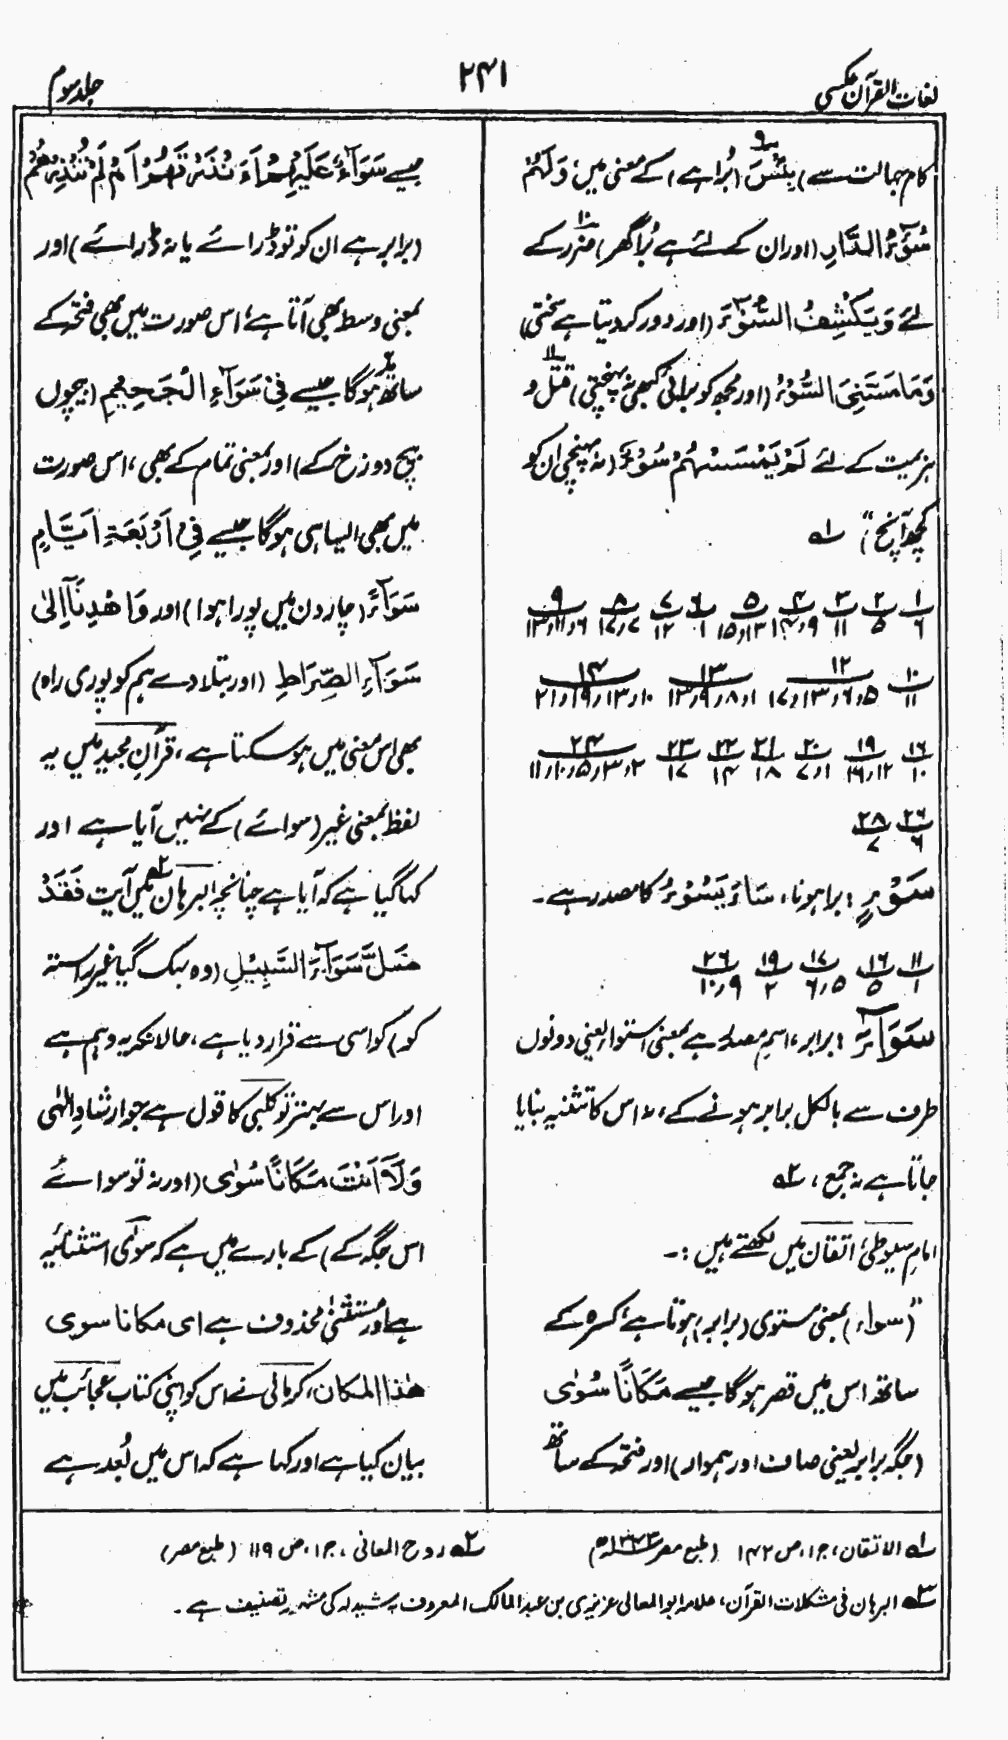 لغات القرآن عکسی
۲۴۱
جلد سوم
کام جہالت سے) بِئْسَ (بُرا ہے) کے معنی میں وَلَهُمْ
سُوْٓءُ الدَّارِ (اور ان کے لئے ہے بُرا گھر) ضرر کے
لئے وَيَكْشِفُ السُّوْٓءَ (اور دور کر دیتا ہے سختی)
وَمَا مَسَّنِيَ السُّوْٓءُ (اور مجھ کو برائی کبھی نہ پہنچتی) قتل و
ہزیمت کے لئے لَمْ يَمْسَسْهُمْ سُوْٓءٌ (نہ پہنچی ان کو
کچھ آنچ)" ۱ه
۱/۶ ۲/۵ ۳/۱۱ ۴/۹،۱۴ ۵/۱۳،۱۵ ۶/۱ ۷/۱۲ ۸/۷،۱۷ ۹/۶،۱۱،۱۳
۱۰/۱۱ ۱۲/۵،۶،۱۳،۱۷ ۱۳/۱،۸،۹،۱۳ ۱۴/۱۰،۱۳،۱۹،۲۱
۱۶/۱۰ ۱۹/۱۲،۱۶ ۲۰/۱،۷ ۲۱/۱۸ ۲۲/۱۴ ۲۳/۱۷ ۲۴/۲،۳،۵،۱۰،۱۱
۲۶/۶ ۲۸/۷
سَوْءٍ: برا ہونا، سَاءَ يَسُوْءُ کا مصدر ہے۔
۱۱/۱ ۱۶/۵ ۱۷/۵،۶ ۱۹/۲ ۲۶/۹،۱۰
سَوَآءً: برابر، اسمِ مصدر ہے بمعنی استوا یعنی دونوں
طرف سے بالکل برابر ہونے کے، نہ اس کا تثنیہ بنایا
جاتا ہے نہ جمع، ۲ه
امام سیوطیؒ اتقان میں لکھتے ہیں :۔
"(سواء) بمعنی مستوی (برابر) ہوتا ہے، کسرہ کے
ساتھ اس میں قصر ہوگا جیسے مَكَانًا سُوًى
(جگہ برابر یعنی صاف اور ہموار) اور فتحہ کے ساتھ
جیسے سَوَآءٌ عَلَيْهِمْ ءَاَنْذَرْتَهُمْ اَمْ لَمْ تُنْذِرْهُمْ
(برابر ہے ان کو تو ڈرائے یا نہ ڈرائے) اور
بمعنی وسط بھی آتا ہے، اس صورت میں بھی فتحہ کے
ساتھ ہوگا جیسے فِيْ سَوَآءِ الْجَحِيْمِ (بیچوں
بیچ دوزخ کے) اور بمعنی تمام کے بھی، اس صورت
میں بھی ایسا ہی ہوگا جیسے فِيْ اَرْبَعَةِ اَيَّامٍ
سَوَآءً (چار دن میں پورا ہوا) اور وَاهْدِنَآ اِلٰى
سَوَآءِ الصِّرَاطِ (اور بتلا دے ہم کو پوری راہ)
بھی اس معنی میں ہو سکتا ہے، قرآن مجید میں یہ
لفظ بمعنی غیر (سوائے) کے نہیں آیا ہے اور
کہا گیا ہے کہ آیا ہے چنانچہ البرہان ۳ه میں آیت فَقَدْ
ضَلَّ سَوَآءَ السَّبِيْلِ (وہ بہک گیا غیر راستہ
کو) کو اسی سے قرار دیا ہے، حالانکہ یہ وہم ہے
اور اس سے بہتر تو کلبی کا قول ہے جو ارشادِ الٰہی
وَلَآ اَنْتَ مَكَانًا سُوًى (اور نہ تو سوائے
اس جگہ کے) کے بارے میں ہے کہ سوٰی استثنائیہ
ہے اور مستثنٰی محذوف ہے ای مكانا سوى
هٰذا المكان، کرمانی نے اس کو اپنی کتاب عجائب میں
بیان کیا ہے اور کہا ہے کہ اس میں بُعد ہے
۱ه الاتقان، ج ۱، ص ۱۴۲ (طبع مصر) ۲ه روح المعانی، ج ۱، ص ۱۱۹ (طبع مصر)
۳ه البرہان فی مشکلات القرآن، علامہ ابو المعالی عزیزی بن عبد المالک المعروف بہ شیدلہ کی مشہور تصنیف ہے۔